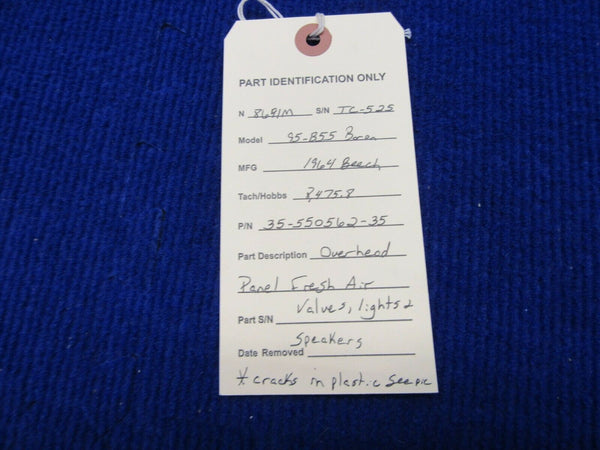 PART IDENTIFICATION ONLY
N 8691M S/N TC-525
Model 95-B55 Baron
MFG 1964 Beech
Tach/Hobbs 8,475.8
P/N 35-550562-35
Part Description Overhead
Panel Fresh Air
Valves, lights &
Part S/N
Speakers
Date Removed
* cracks in plastic See pic